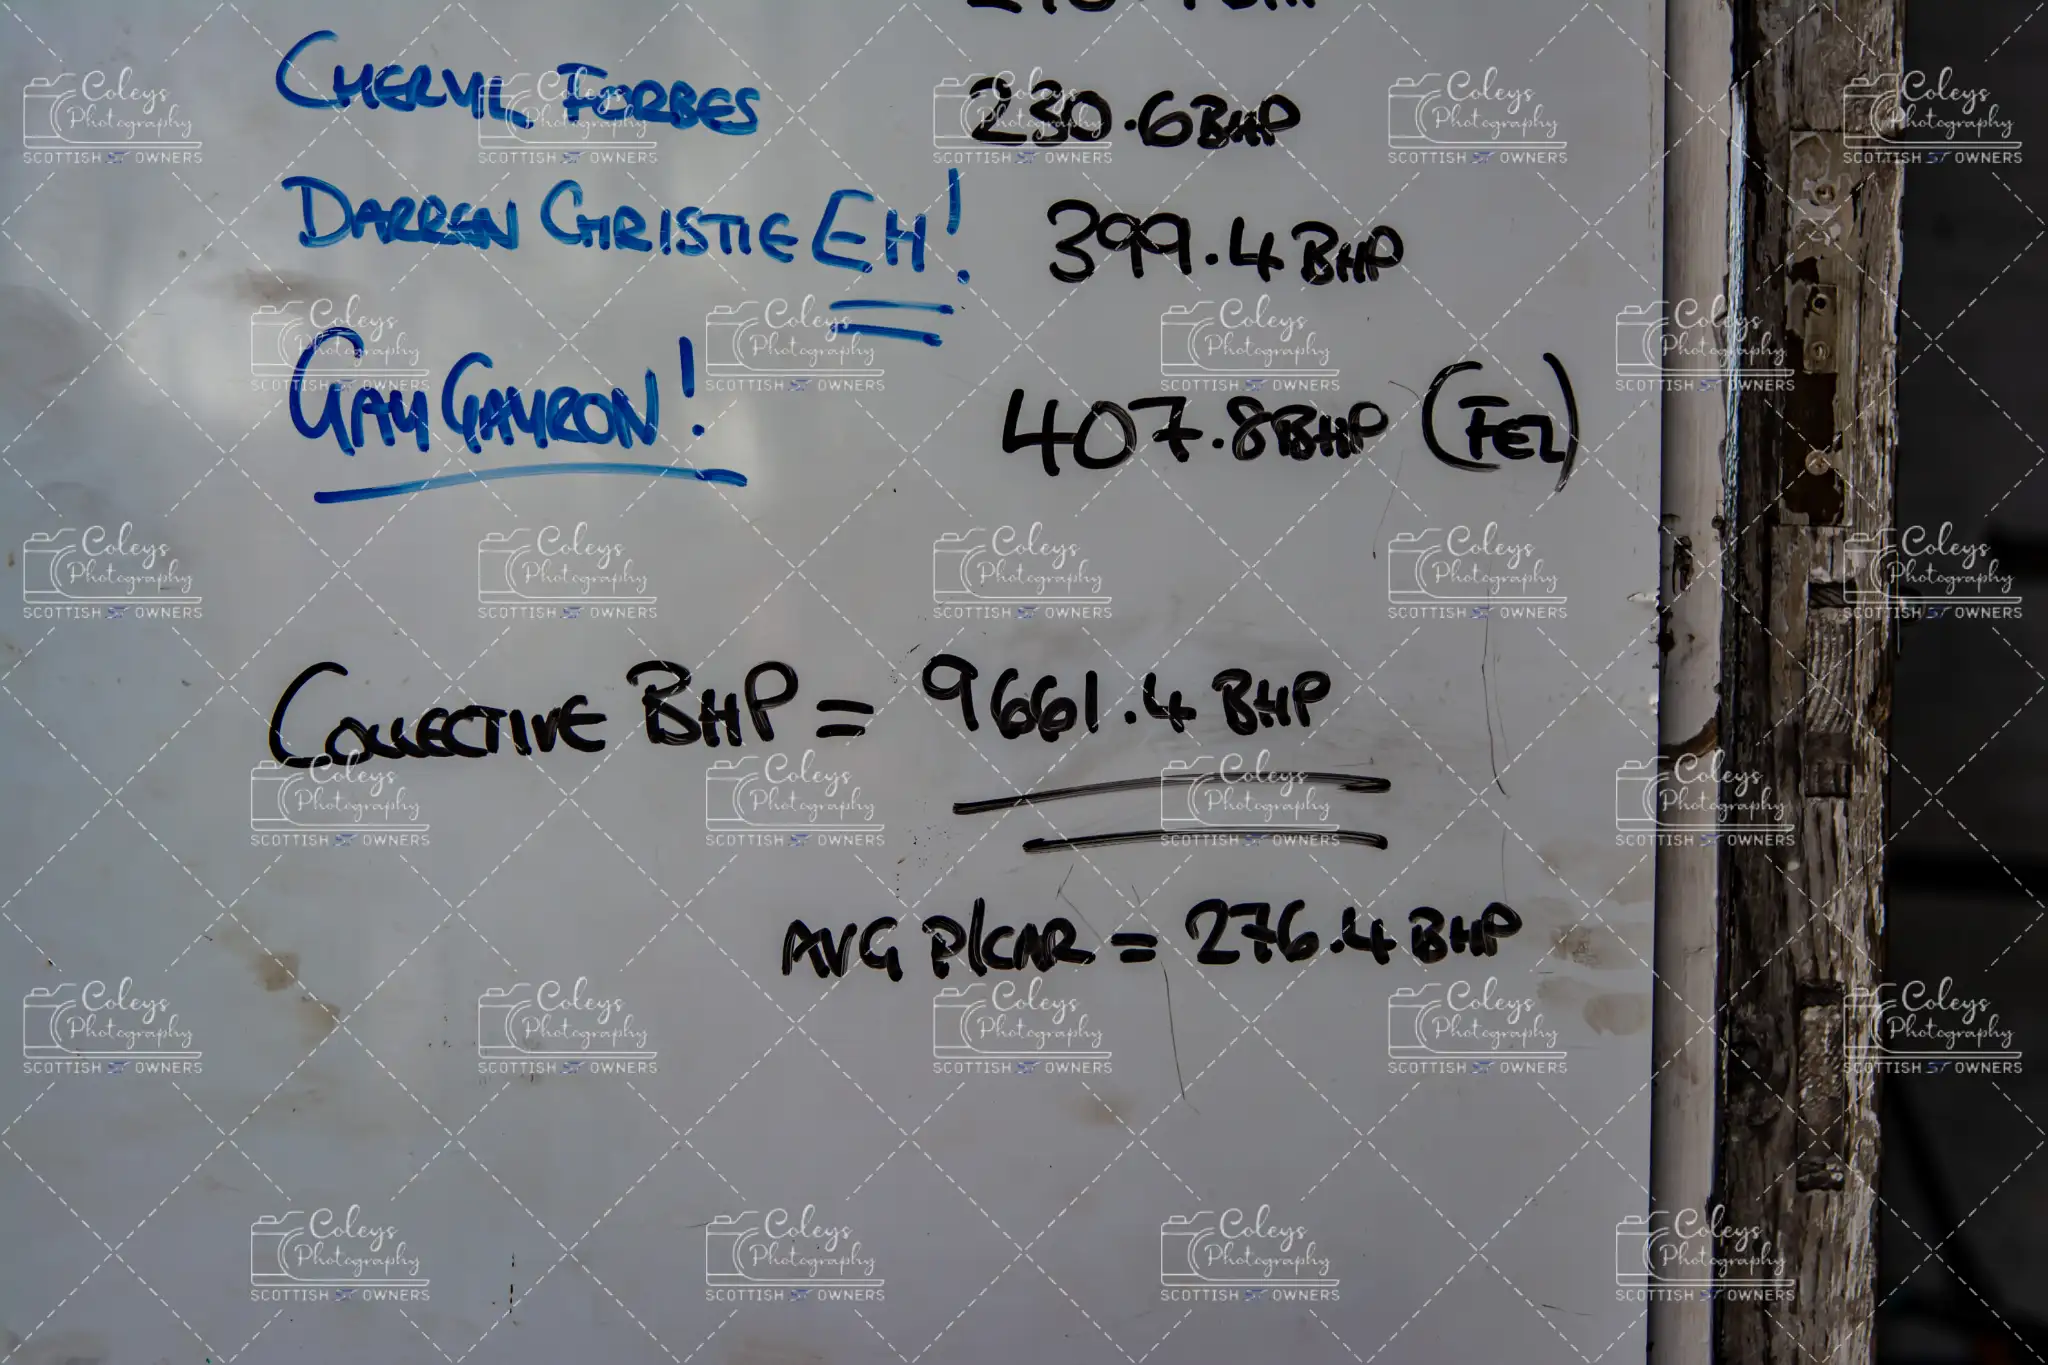 CHERYL FORBES 230.6BHP
DARREN CHRISTIE EH! 399.4 BHP
GAY GAYRON! 407.8BHP (FEZ)
COLLECTIVE BHP = 9661.4 BHP
AVG P/CAR = 276.4 BHP
Coleys Photography
SCOTTISH ST OWNERS